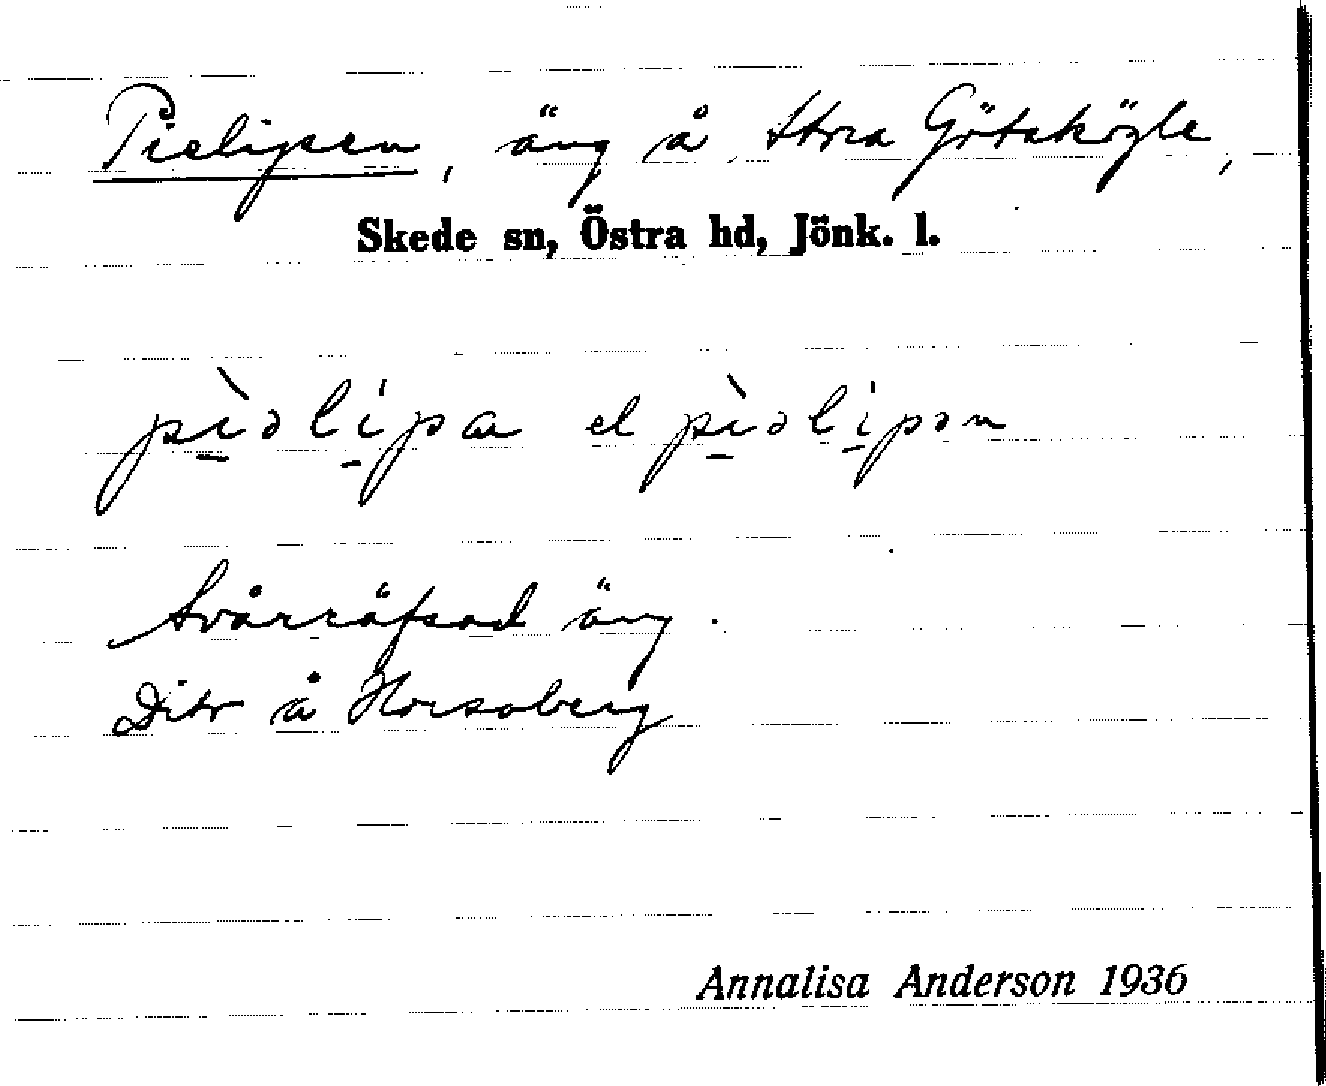 Pielipen, äng å Stora Götskögle,
Skede sn, Östra hd, Jönk. l.
pìəlipa el pìəlipən
Svårräfsad äng.
Ditr å Horsaberg
Annalisa Anderson 1936